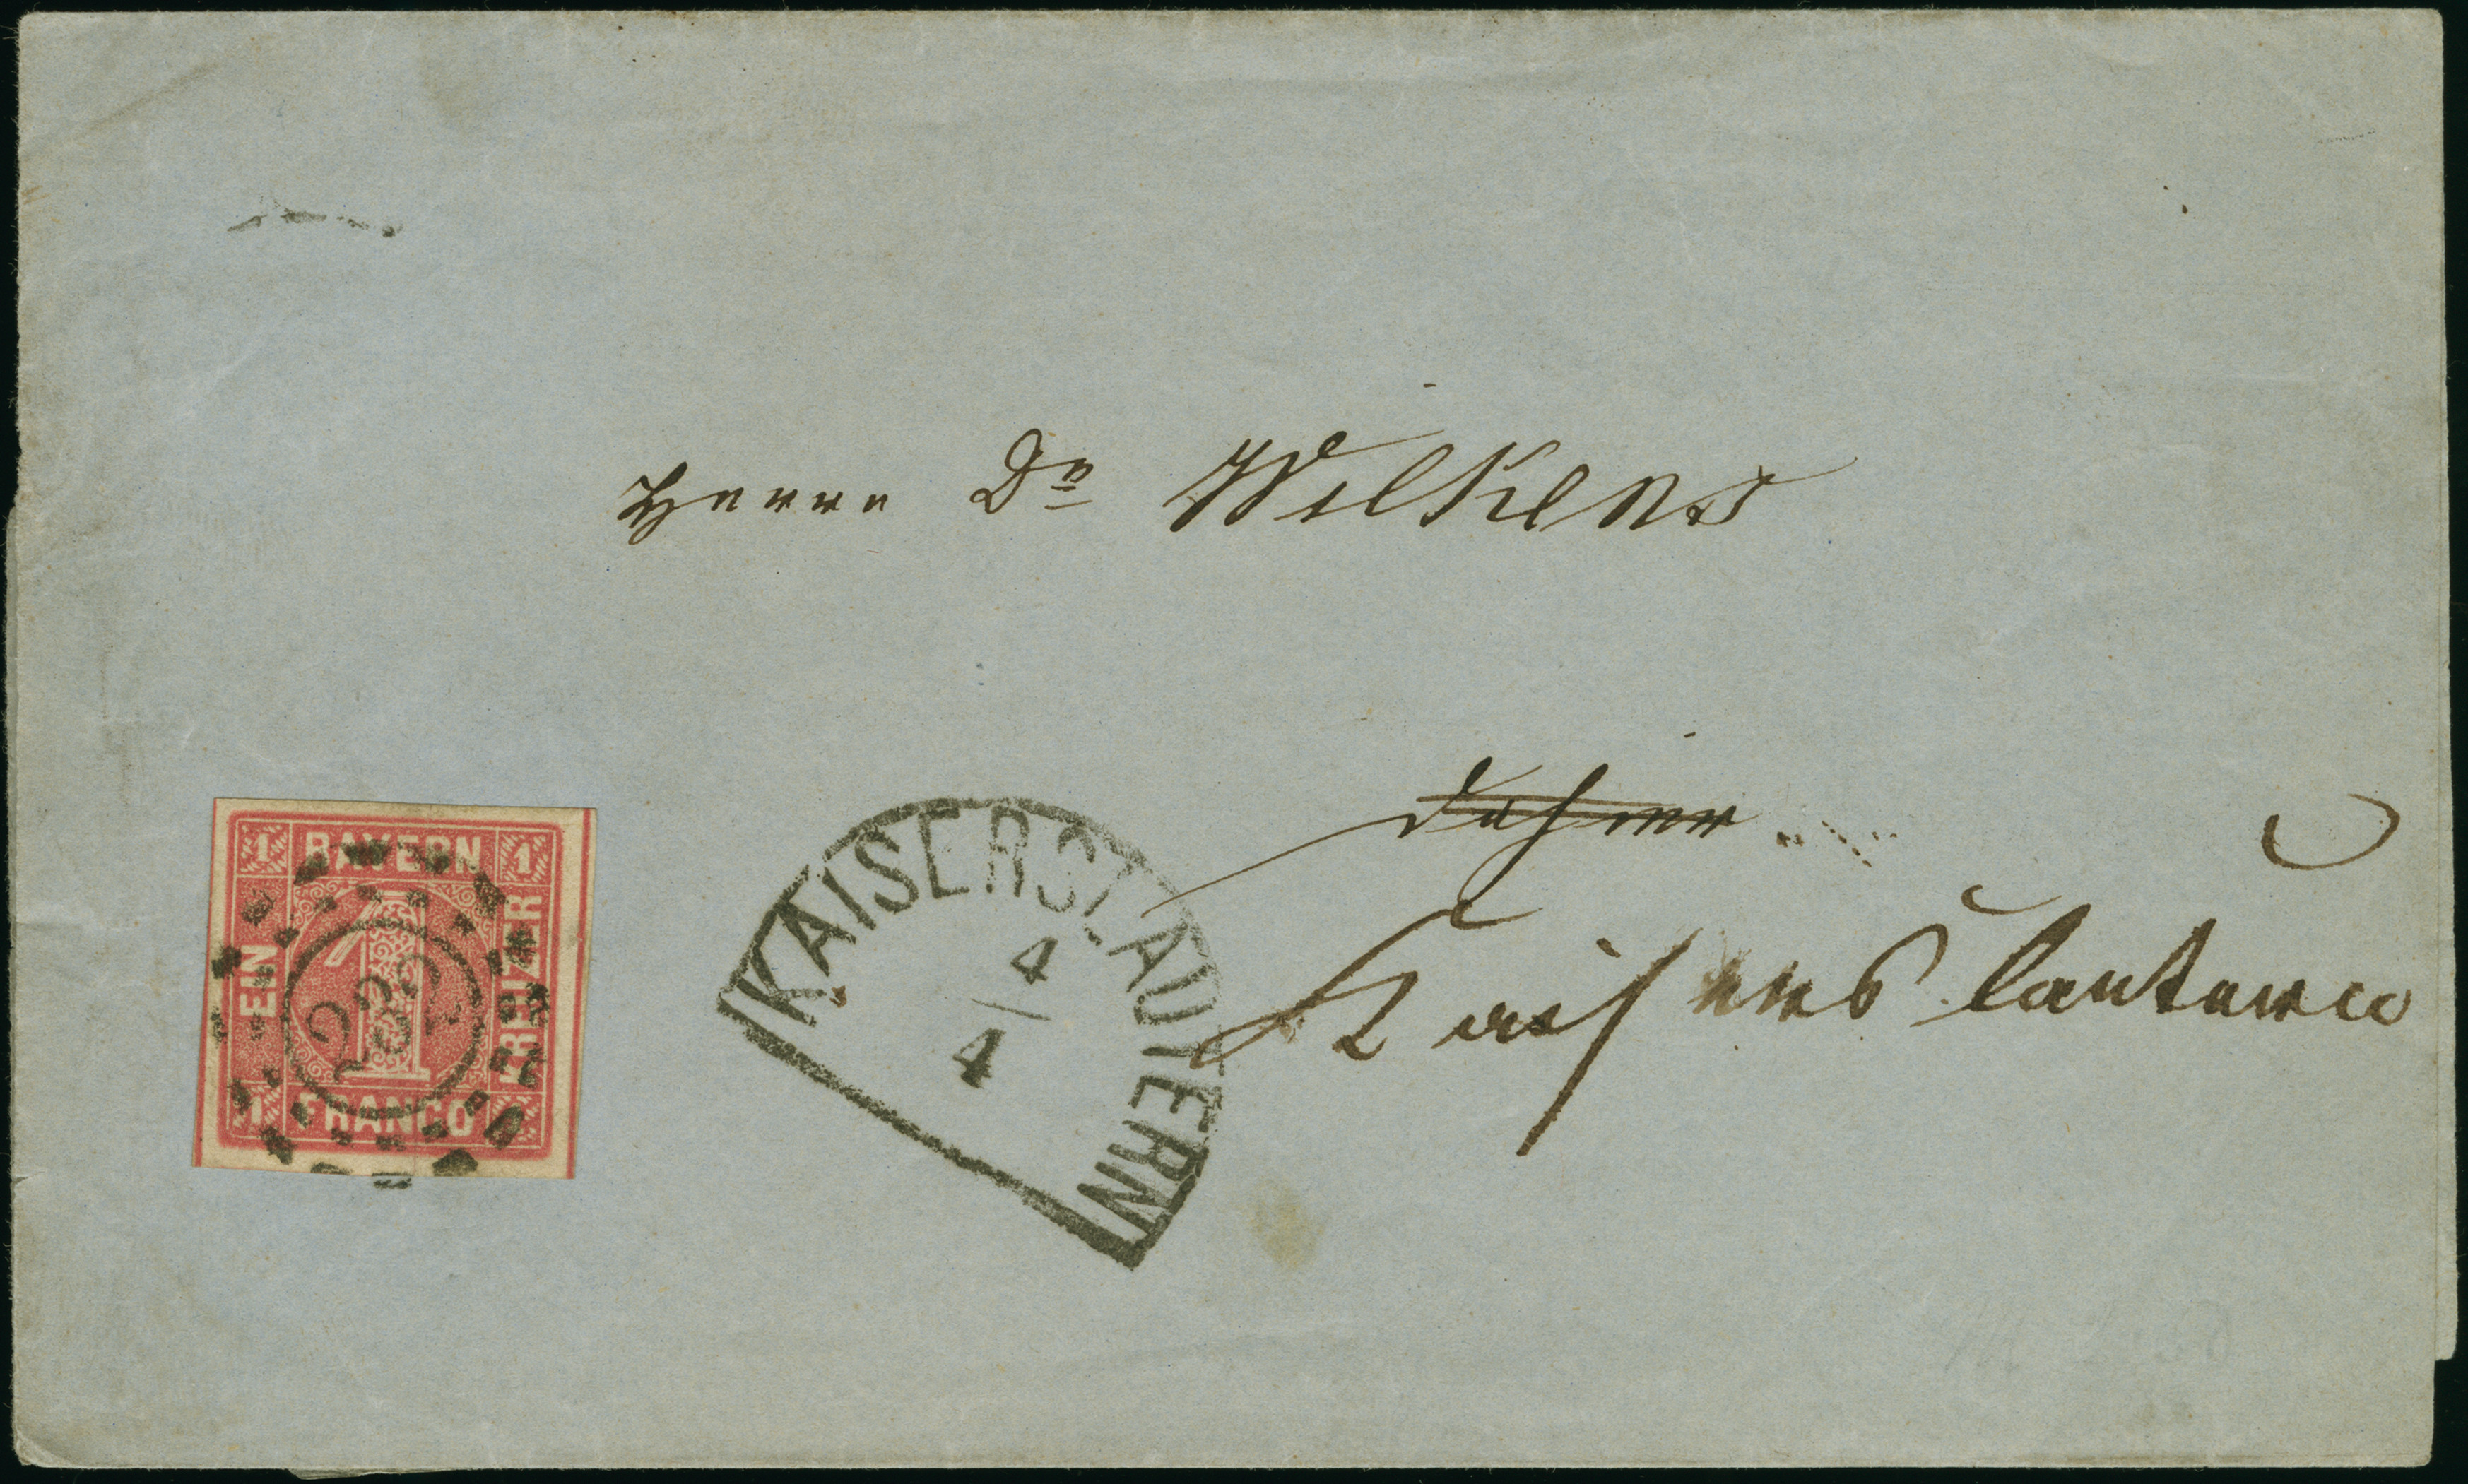 Herrn Dr Wilkens
dahier
Kaiserslautern
1 BAYERN 1
EIN
KREUZER
1
232
1 FRANCO 1
KAISERSLAUTERN
4
4